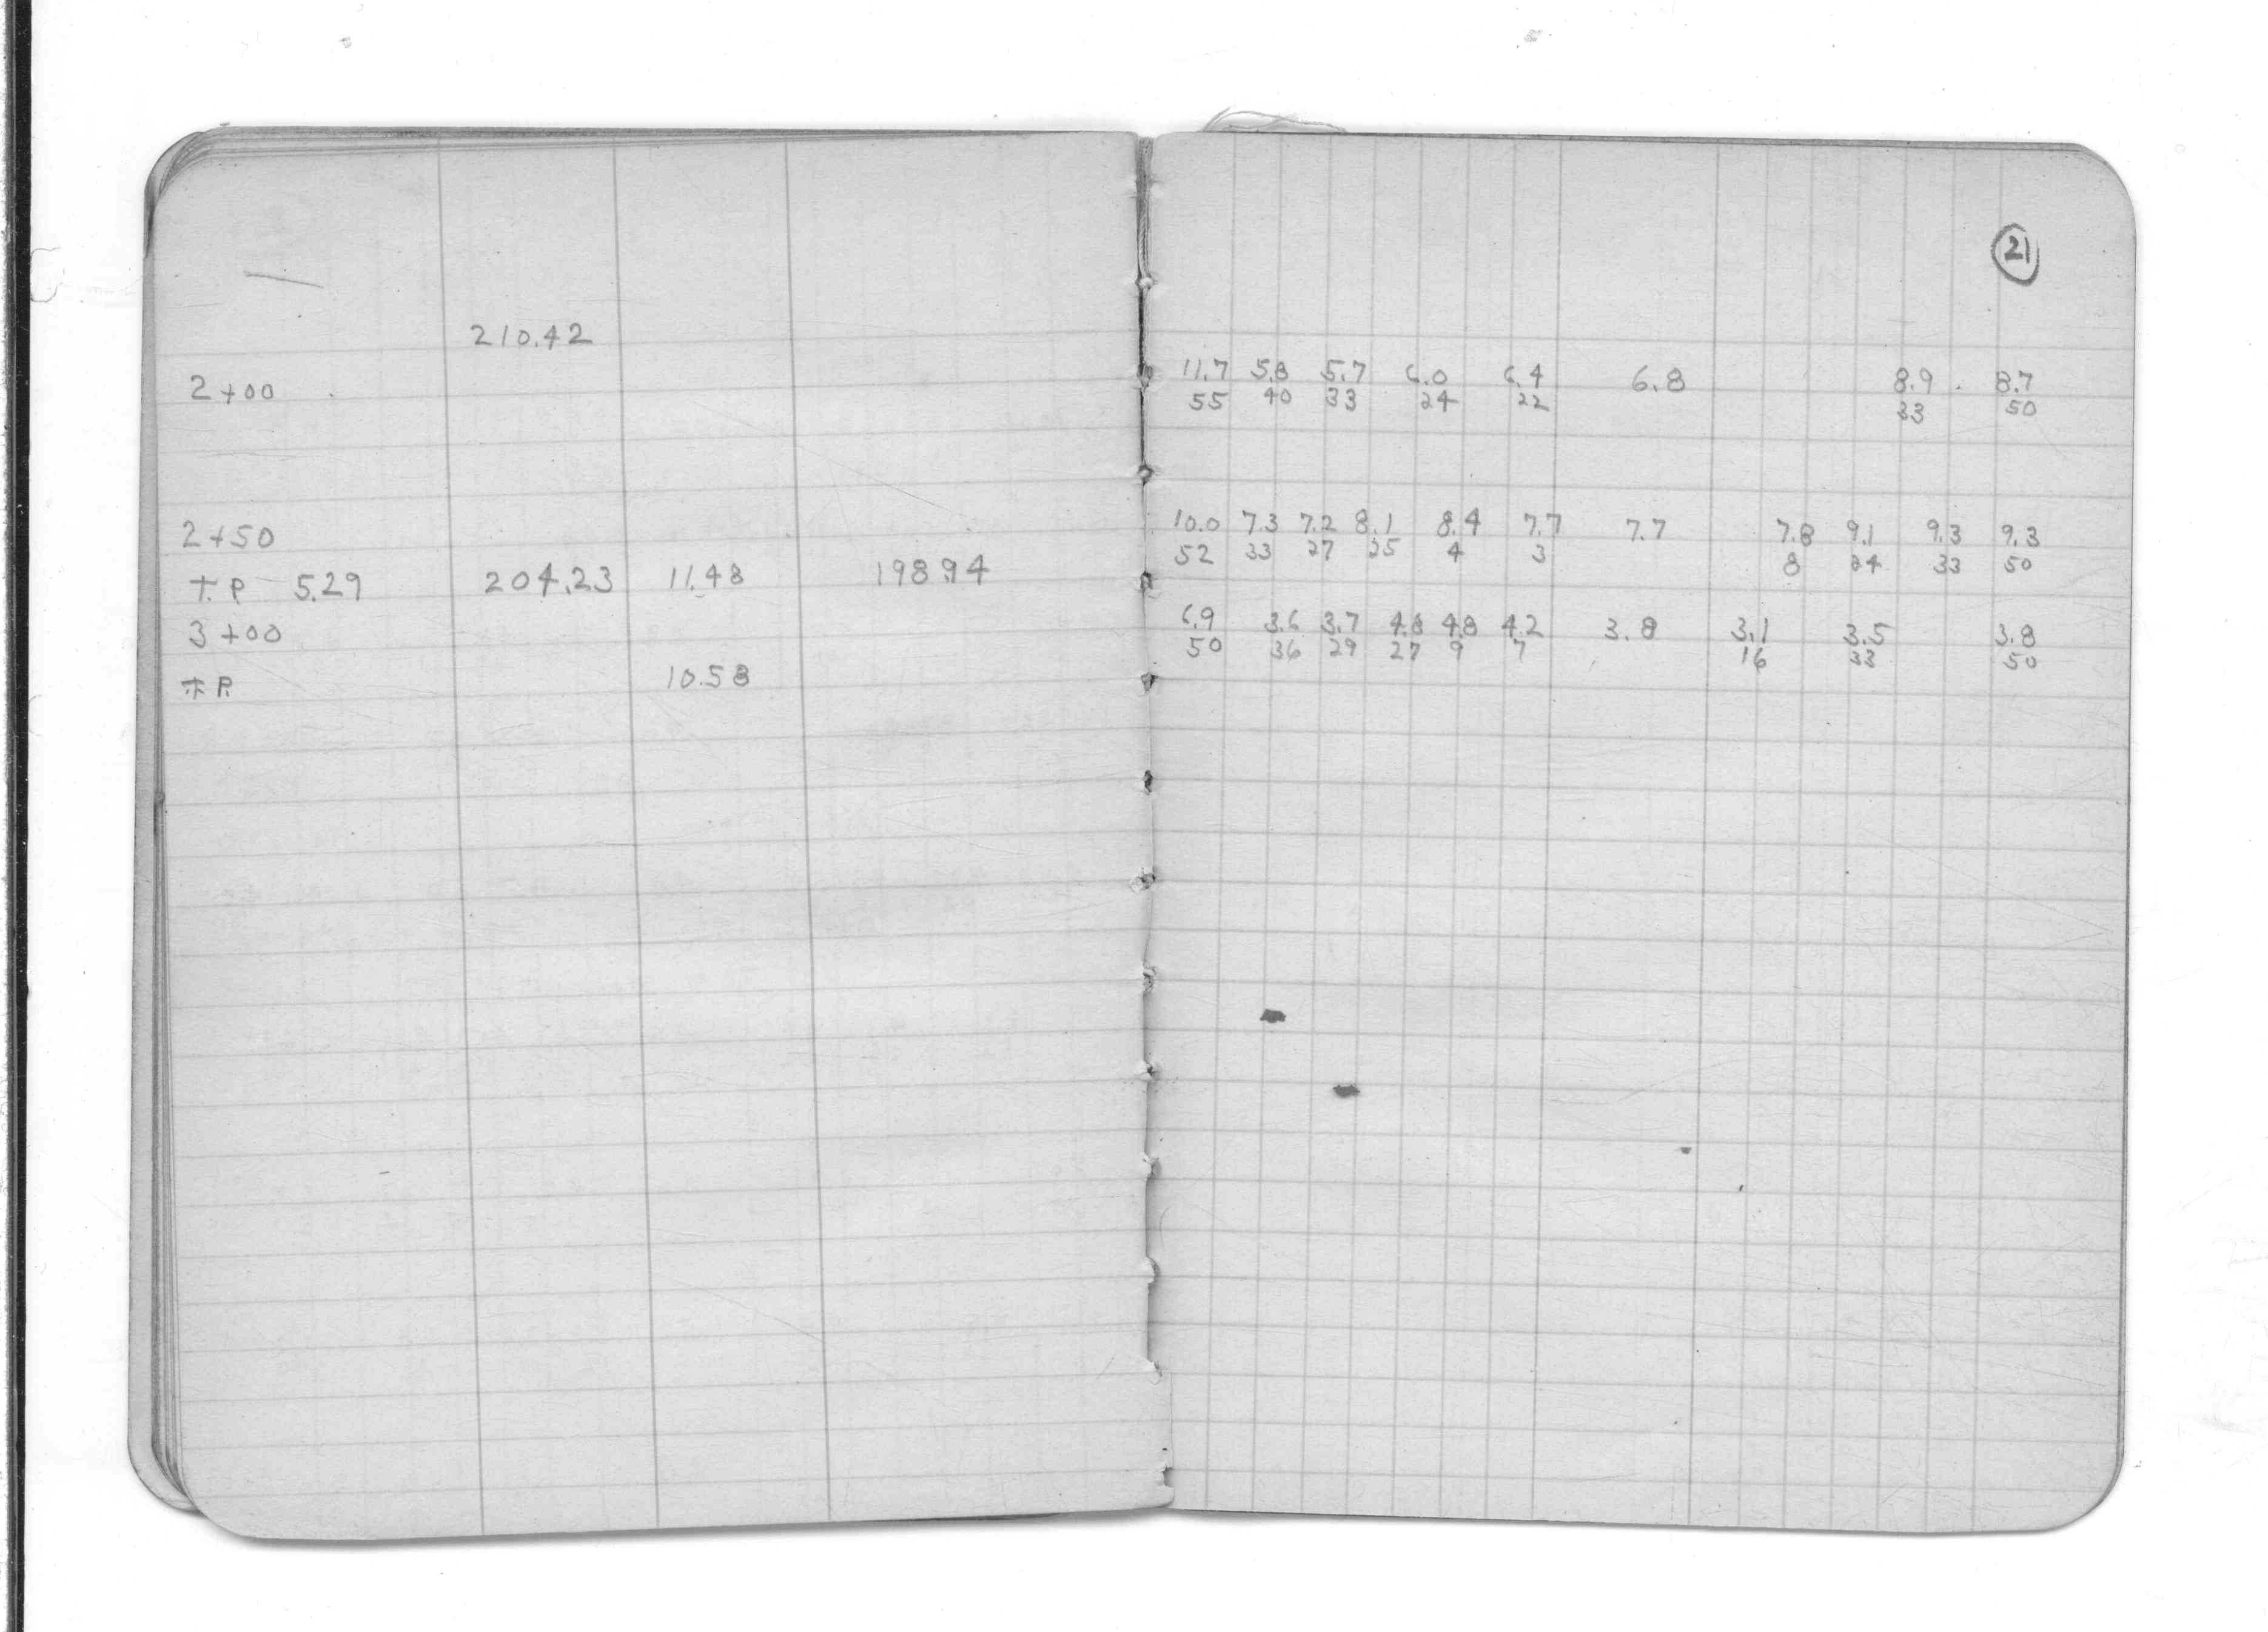 21
210.42
2+00
11.7 5.8 5.7 6.0 6.4 6.8 8.9 8.7
55 40 33 24 22 33 50
2+50
10.0 7.3 7.2 8.1 8.4 7.7 7.7 7.8 9.1 9.3 9.3
52 33 27 25 4 3 8 24 33 50
T.P 5.29 204.23 11.48 198.94
3+00
6.9 3.6 3.7 4.8 4.8 4.2 3.8 3.1 3.5 3.8
50 36 29 27 9 7 16 33 50
T.P. 10.58